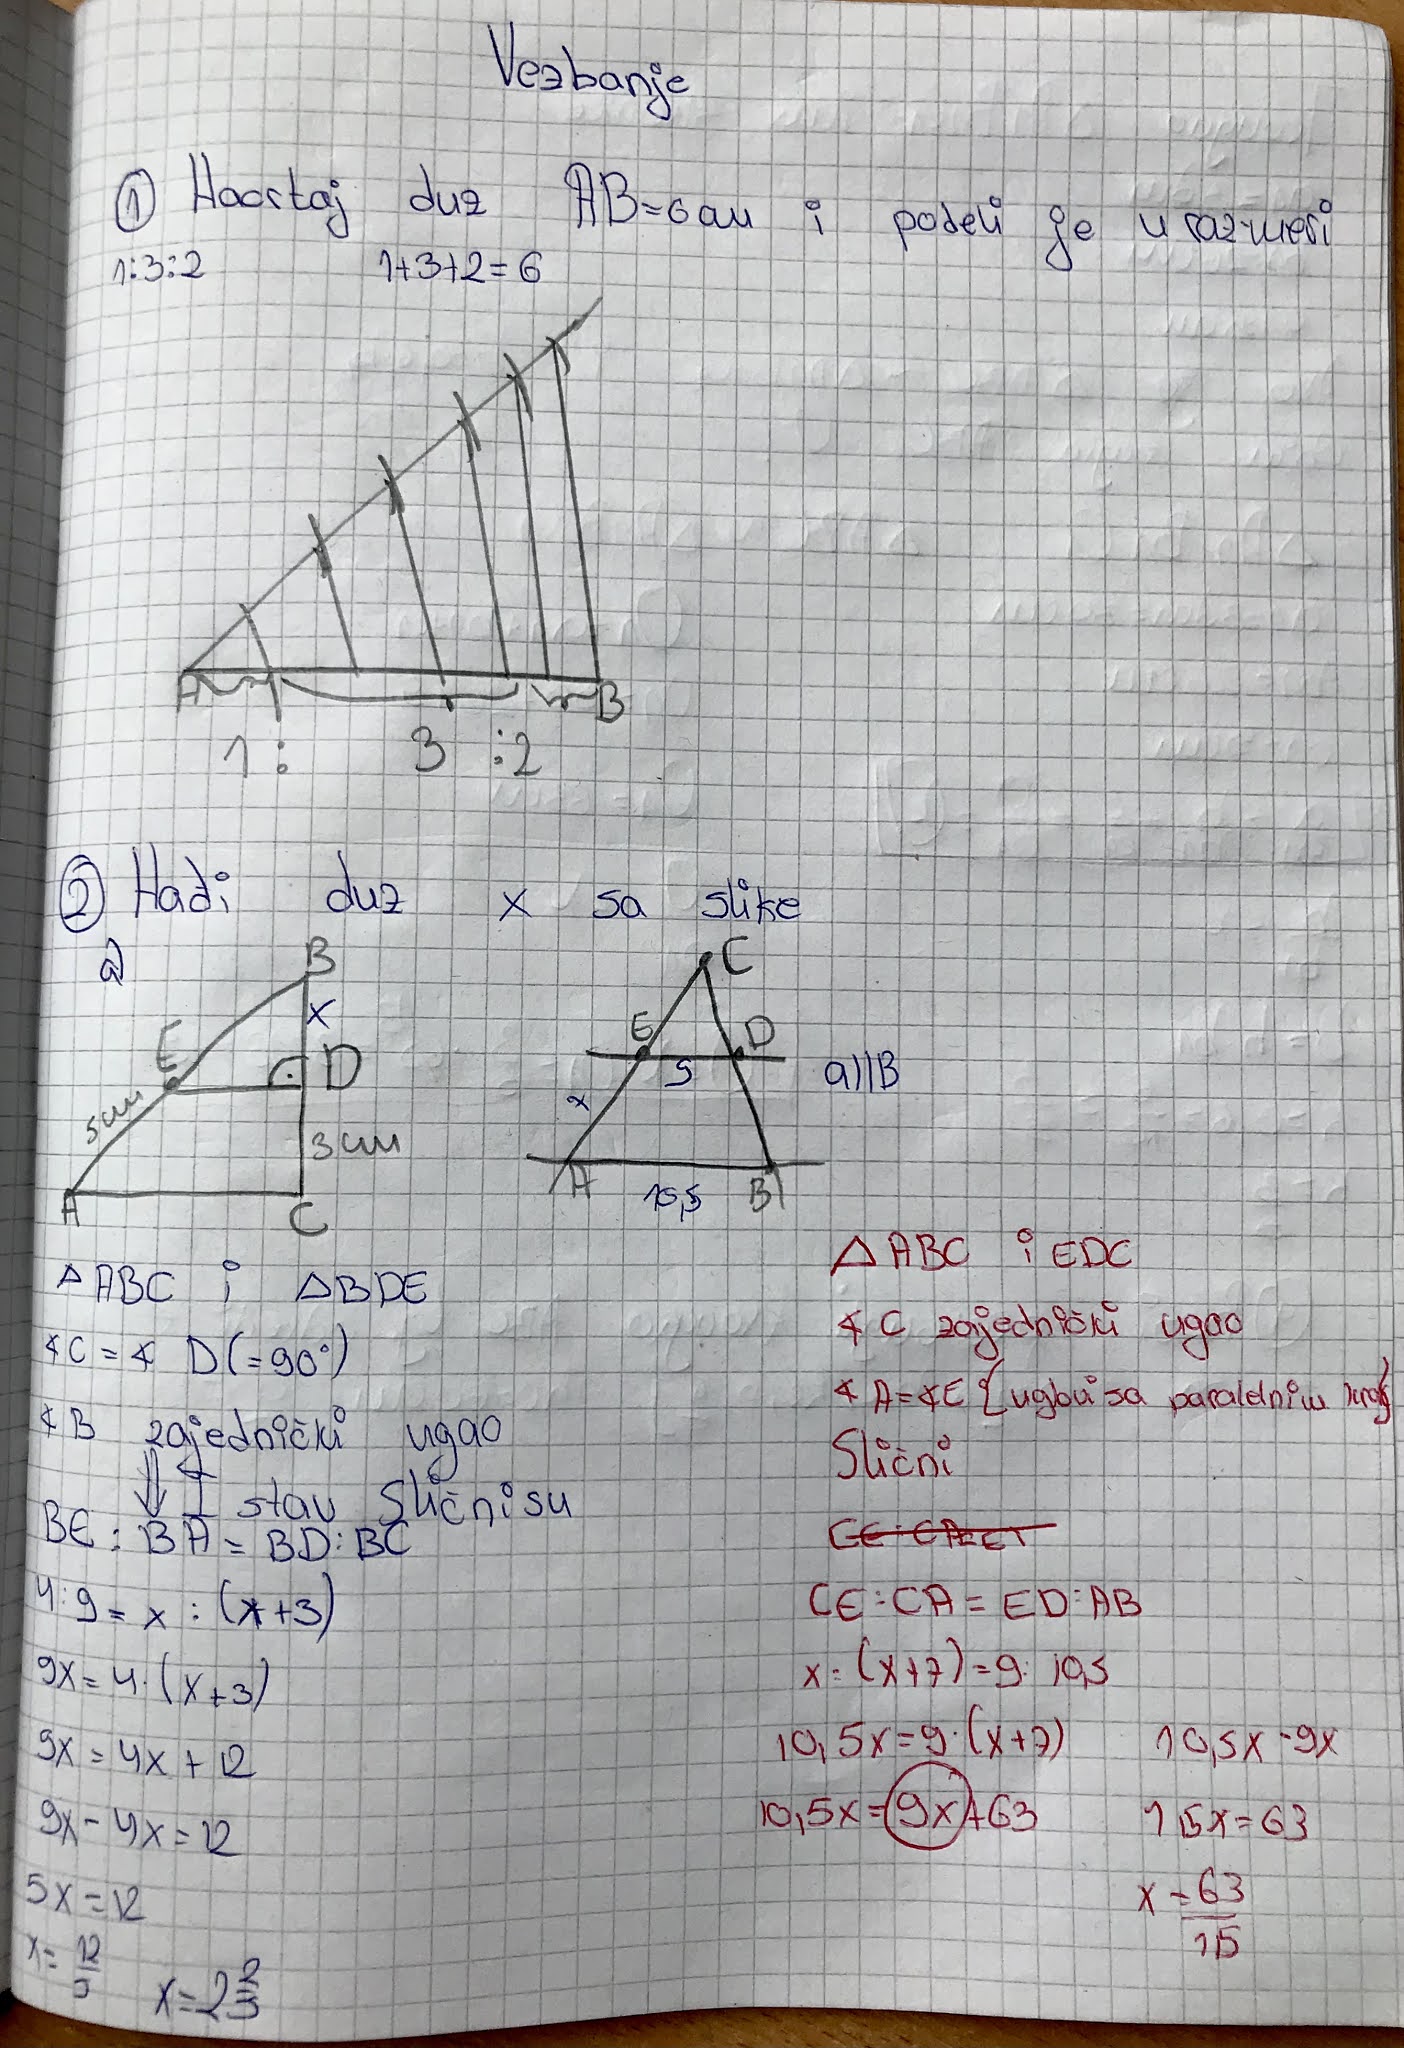 Vezbanje
① Hacrtaj duz AB=6cm i podeli je u razmeri
1:3:2 1+3+2=6
A B
1: 3 :2
② Hadi duz x sa slike
a)
B
x
E
D
5cm
3cm
A
C
C
E D
9
a||B
x
A B
10,5
△ABC i △BDE
∢C=∢ D(=90°)
∢B zajednički ugao
⇓ I stav Slični su
BE:BA=BD:BC
4:9=x:(x+3)
9x=4·(x+3)
9x=4x+12
9x-4x=12
5x=12
x=12/5 x=2 2/5
△ABC i EDC
∢C zajednički ugao
∢A=∢E {uglovi sa paralelnim krac}
Slični
CE:CA=ED:AB
x:(x+7)=9:10,5
10,5x=9·(x+7) 10,5x-9x
10,5x=9x+63 1,5x=63
x=63/1,5